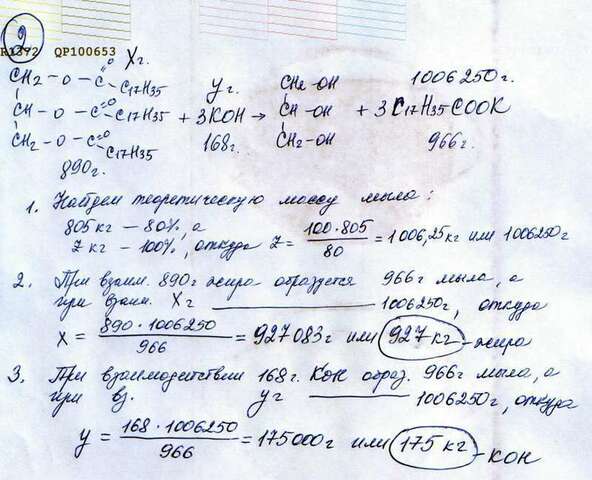 9
R1372 QP100653
Xг.
CH2 - O - C =O C17H35
CH - O - C =O C17H35 + 3KOH → CH - OH + 3C17H35COOK
yг. CH2 - OH 1006250г.
CH2 - O - C =O C17H35 168г. CH2 - OH 966г.
890г.
1. Найдем теоретическую массу мыла:
805 кг — 80%, а
Z кг — 100%, откуда Z = 100·805 / 80 = 1006,25 кг или 1006250г
2. При взаим. 890г жира образуется 966г мыла, а
при взаим. Xг ——— 1006250г, откуда
X = 890·1006250 / 966 = 927083г или 927 кг - жира
3. При взаимодействии 168г. KOH образ. 966г мыла, а
при вз. yг ——— 1006250г, откуда
y = 168·1006250 / 966 = 175000г или 175 кг - KOH